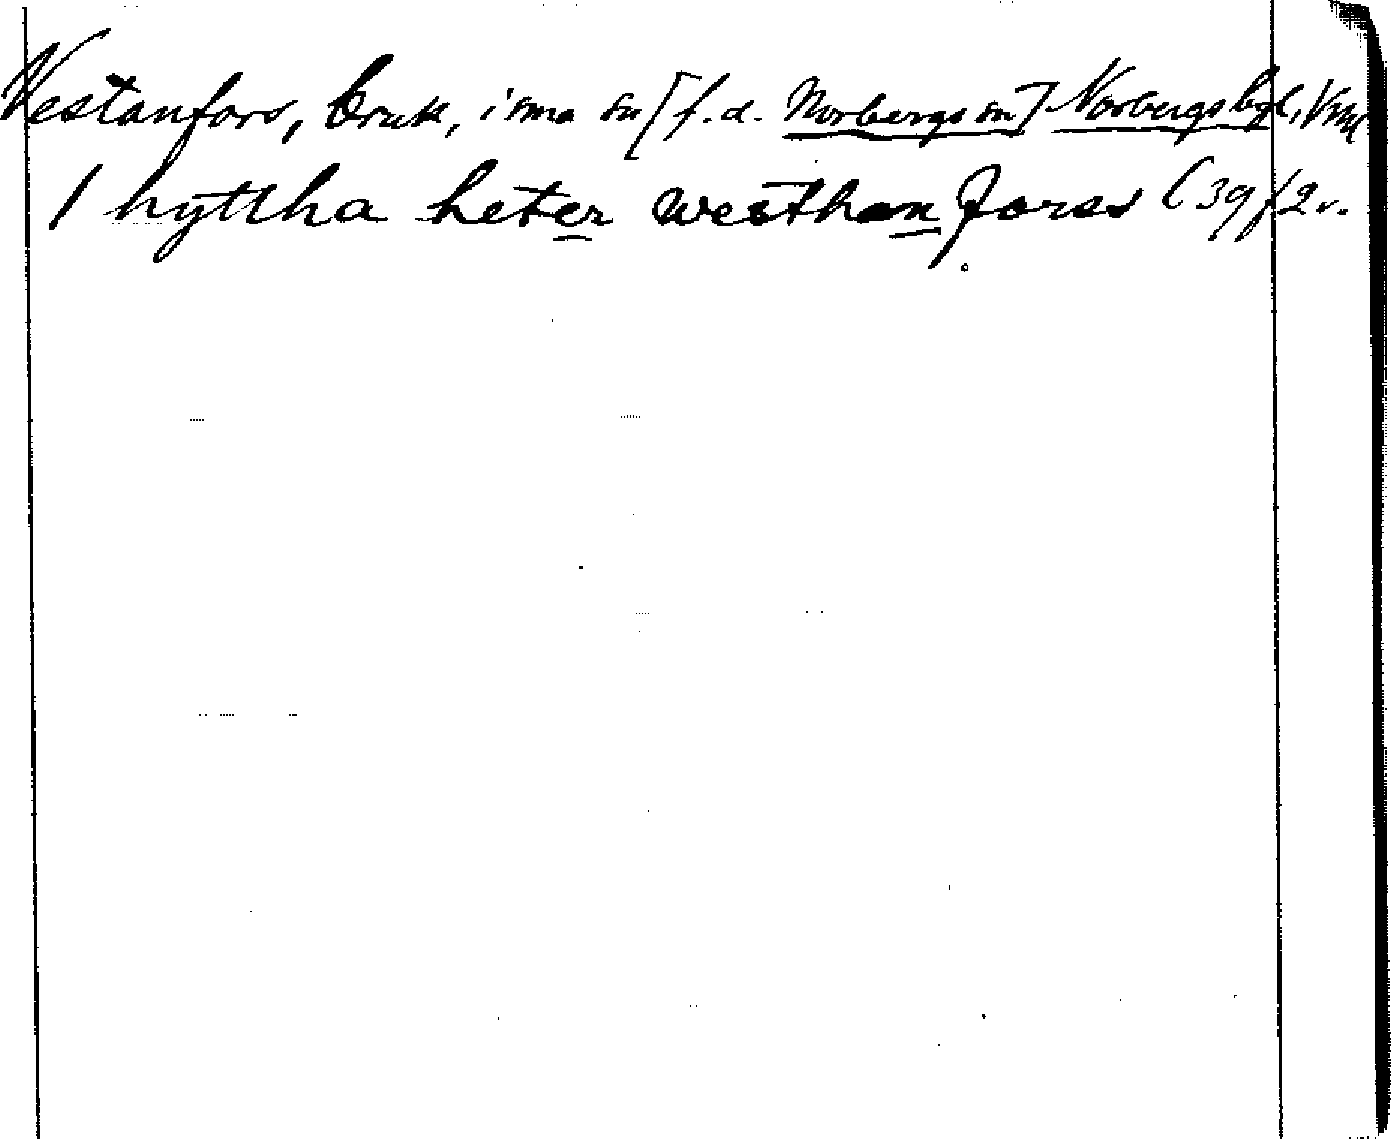 Vestanfors, bruk, i sma sn [f.d. Norbergs sn] Norbergs bgl, Vml
1 hyttha heter westhan forss (39 f 2 v.